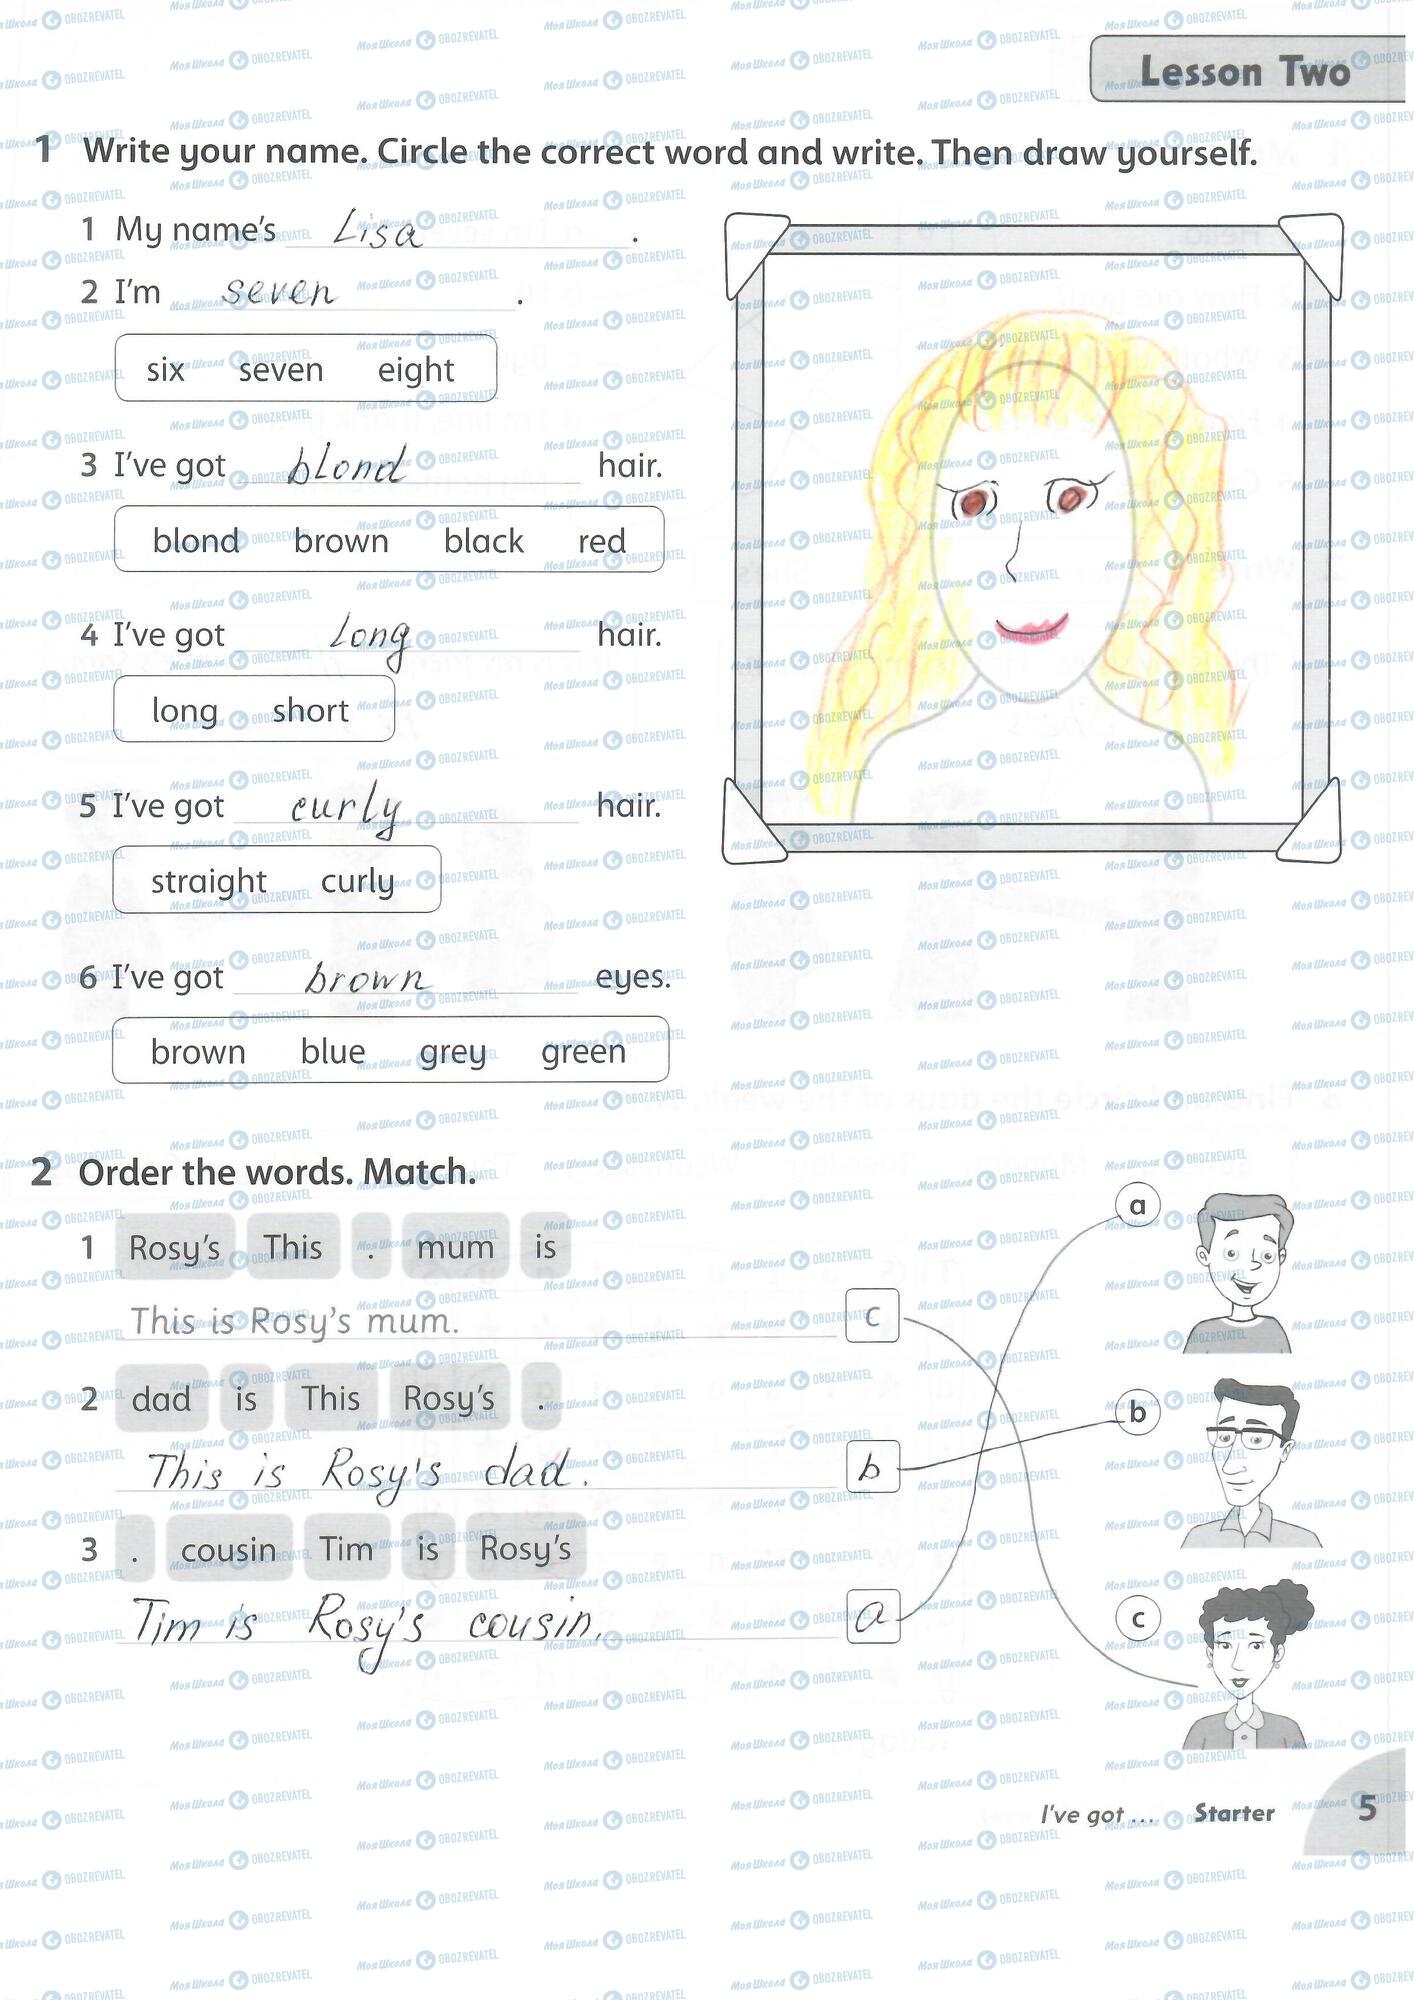 Lesson Two
1 Write your name. Circle the correct word and write. Then draw yourself.
1 My name's Lisa.
2 I'm seven.
six seven eight
3 I've got blond hair.
blond brown black red
4 I've got long hair.
long short
5 I've got curly hair.
straight curly
6 I've got brown eyes.
brown blue grey green
2 Order the words. Match.
1 Rosy's This . mum is
This is Rosy's mum. c
2 dad is This Rosy's .
This is Rosy's dad. b
3 . cousin Tim is Rosy's
Tim is Rosy's cousin. a
a
b
c
I've got ... Starter 5
Моя Школа OBOZREVATEL